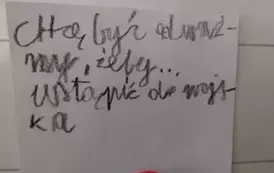 Chcę być odważ-
nym, żeby...
wstąpić do wojs-
ka